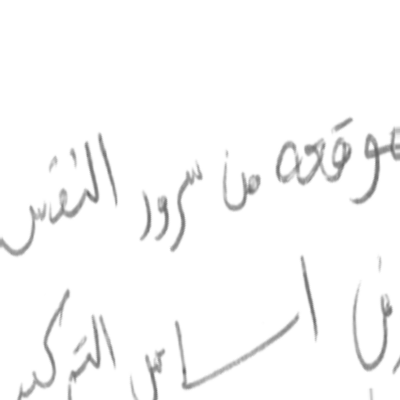 موقعه من سرور النفس
أساس التركيـ